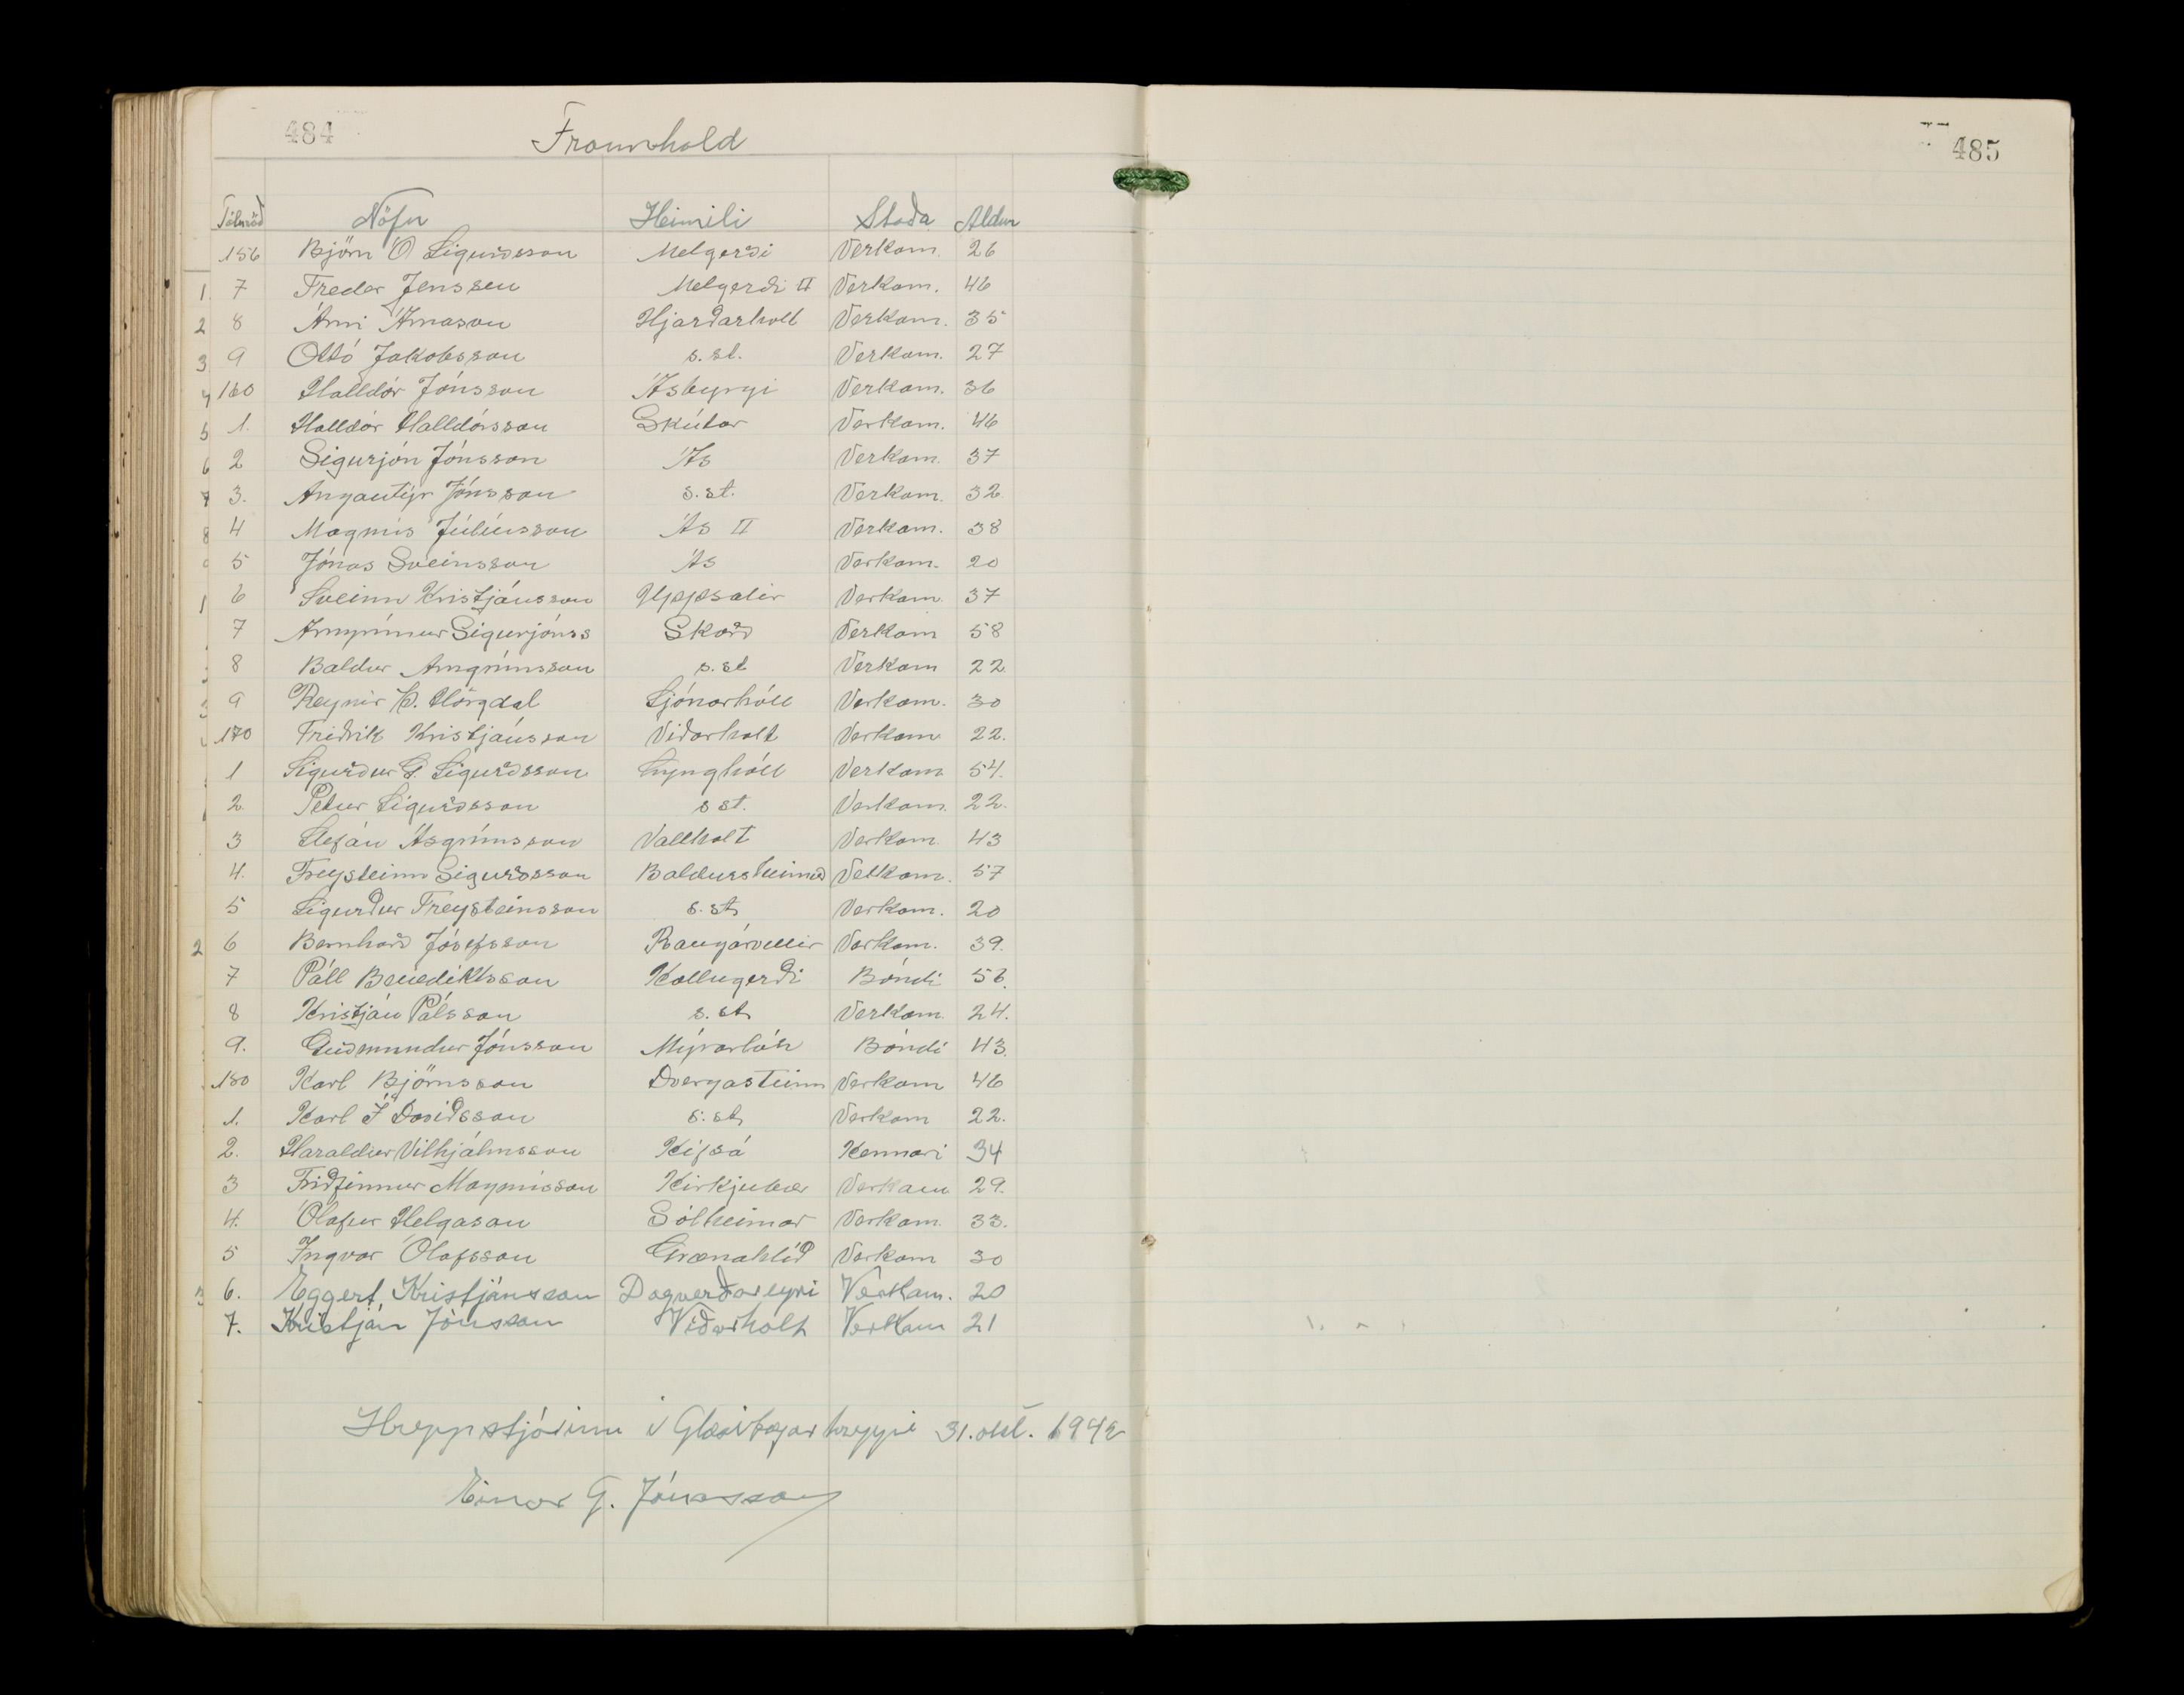 484
Framhald
485
Tölusröð Nöfn Heimili Staða Aldur
156 Björn Ó Sigurðsson Melgerði Verkam. 26
7 Freder Jenssen Melgerði II Verkam. 46
8 Árni Árnason Hjarðarholt Verkam. 35
9 Ottó Jakobsson s.st. Verkam. 27
160 Halldór Jónsson Ásbyrgi Verkam. 36
1. Halldór Halldórsson Skútar Verkam. 46
2 Sigurjón Jónsson Ás Verkam. 37
3. Angantýr Jónsson s.st. Verkam. 32
4 Magnús Júlíusson Ás II Verkam. 38
5 Jónas Sveinsson Ás Verkam. 20
6 Sveinn Kristjánsson Uppsalir Verkam. 37
7 Arngrímur Sigurjónss Skarð Verkam 58
8 Baldur Arngrímsson s.st Verkam 22
9 Reynir Hörgdal Sjónarhóll Verkam. 30
170 Friðrik Kristjánsson Viðarholt Verkam 22.
1 Sigurður G. Sigurðsson Lynghóll Verkam 54.
2. Petur Sigurðsson s st. Verkam. 22.
3 Stefán Ásgrímsson Vallholt Verkam. 43
4. Freysteinn Sigurðsson Baldursheimur Verkam. 57
5 Sigurður Freysteinsson s.st Verkam. 20
6 Bernharð Jósefsson Rangárvellir Verkam. 39.
7 Páll Benediktsson Kollugerði Bóndi 56.
8 Kristján Pálsson s.st Verkam. 24.
9. Guðmundur Jónsson Mýrarlón Bóndi 43.
180 Karl Björnsson Dvergasteinn Verkam 46
1. Karl F Davíðsson s.st Verkam 22.
2. Haraldur Vilhjálmsson Kífsá Kennari 34
3 Friðfinnur Magnússon Kirkjubær Verkam 29.
4. Ólafur Helgason Sólheimar Verkam. 33.
5 Ingvar Ólafsson Grænahlíð Verkam 30
6. Eggert Kristjánsson Dagverðareyri Verkam. 20
7. Kristján Jónsson Viðarholt Verkam 21
Hreppstjórinn í Glæsibæjarhreppi 31. okt. 1942
Einar G. Jónasson